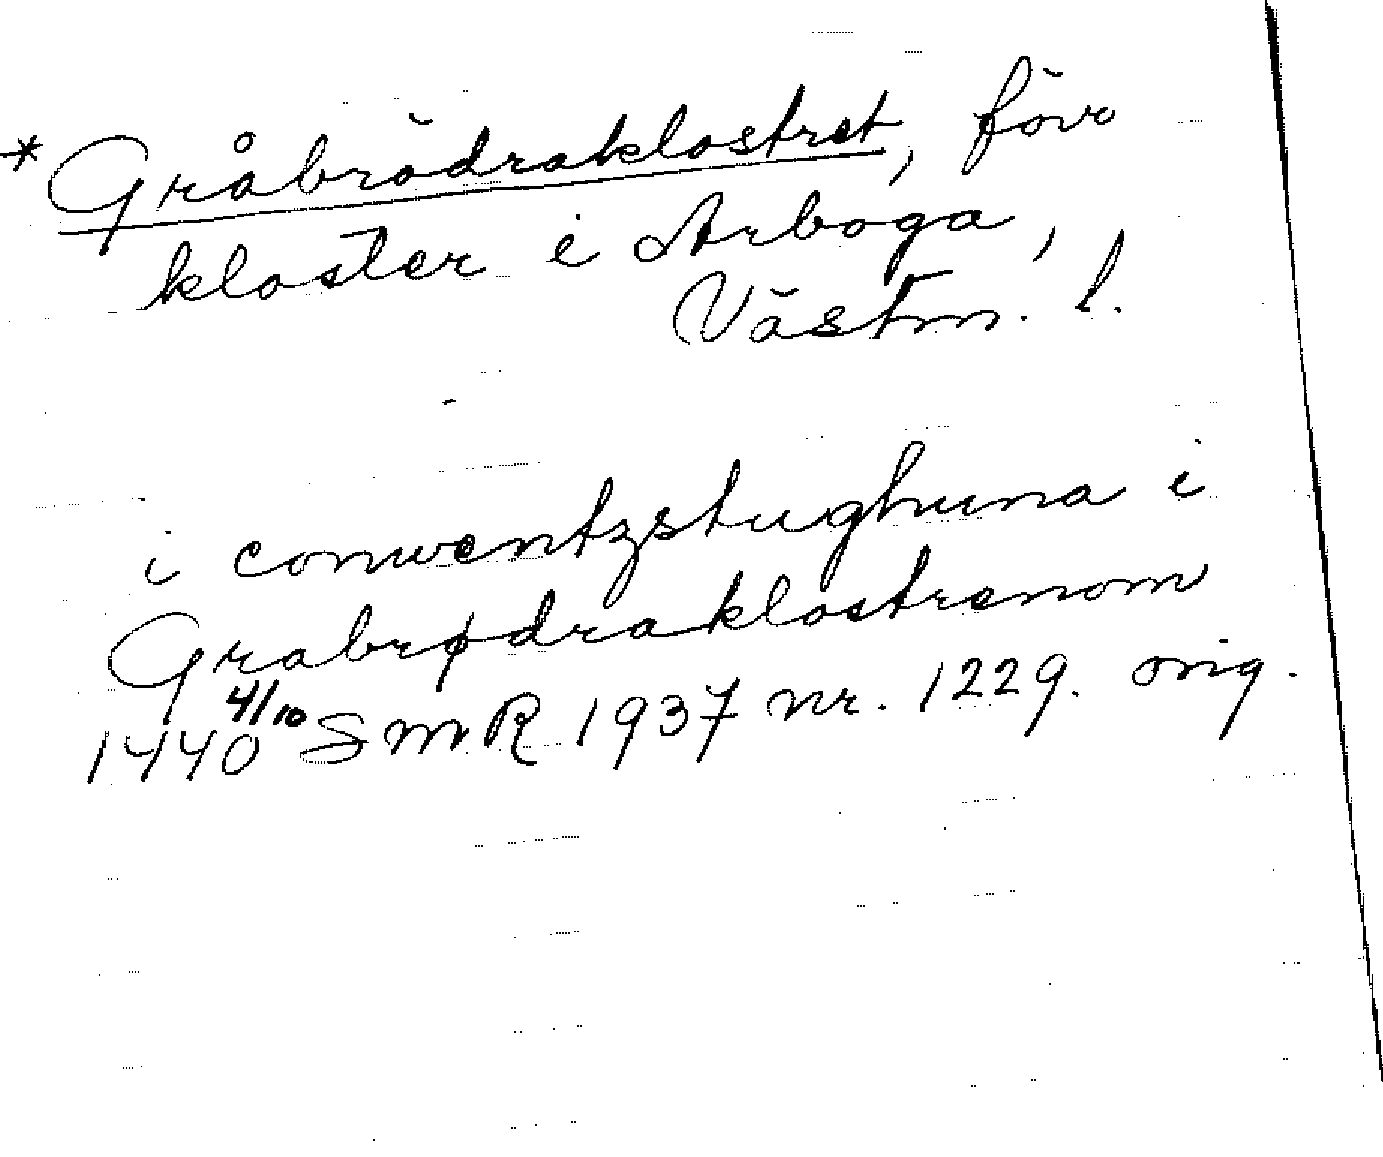 * Gråbrödraklostret, förv
kloster i Arboga,
Västm. l.
i conwentzstughuna i
Grabrødraklostrenom
1440 4/10 SMR 1937 nr. 1229. orig.